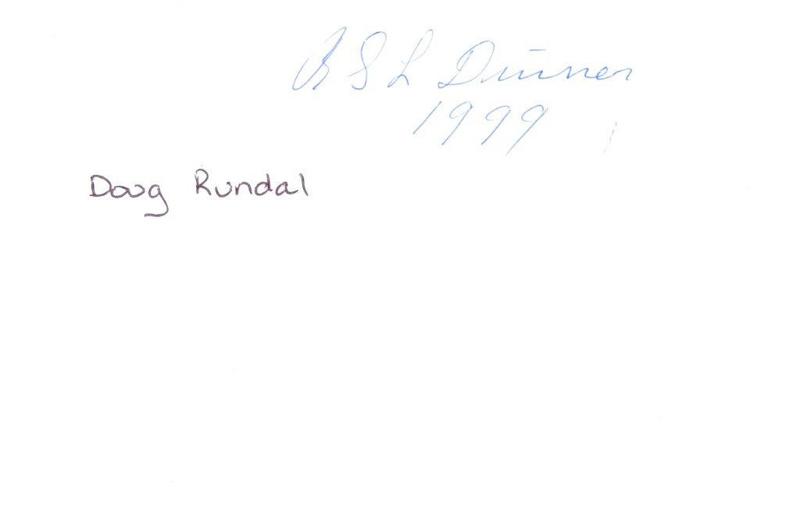 RSL Dinner
1999
Doug Rundal